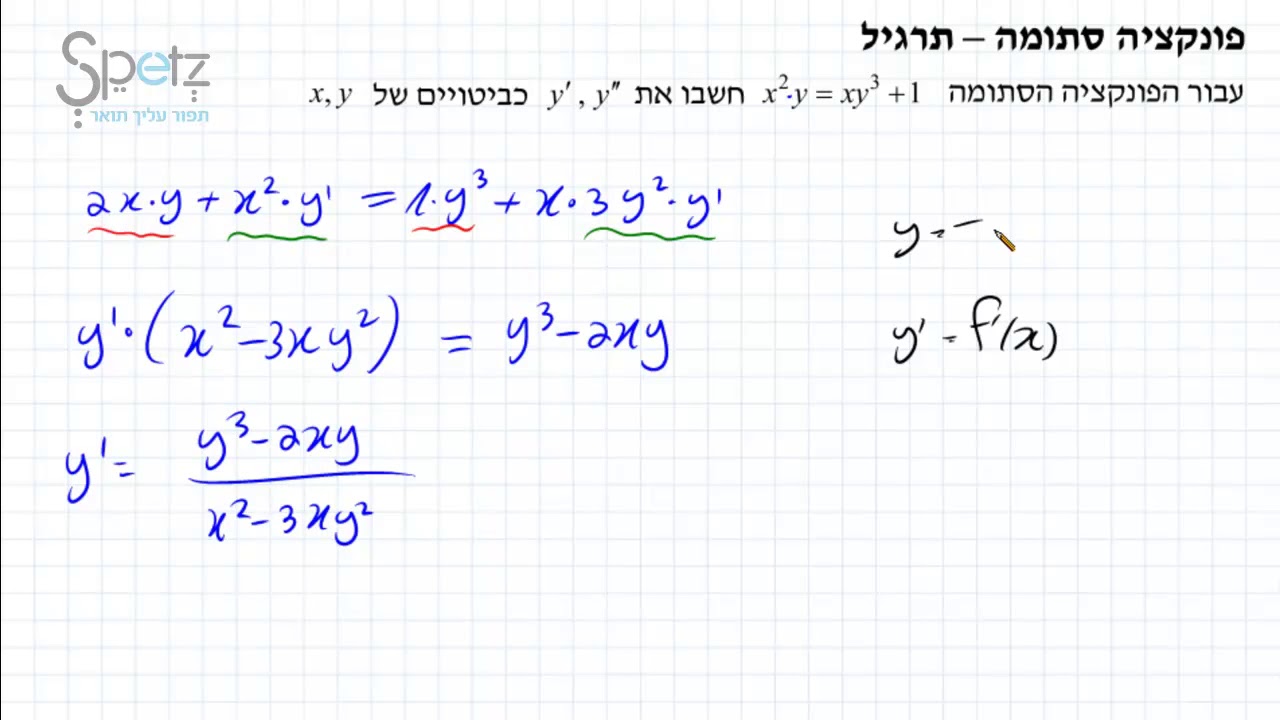 Spetz
תפור עליך תואר
פונקציה סתומה – תרגיל
עבור הפונקציה הסתומה x²·y = xy³ + 1 חשבו את y′ , y″ כביטויים של x, y
2x·y + x²·y' = 1·y³ + x·3y²·y'
y'·(x² - 3xy²) = y³ - 2xy
y' = (y³ - 2xy)/(x² - 3xy²)
y =
y' = f'(x)